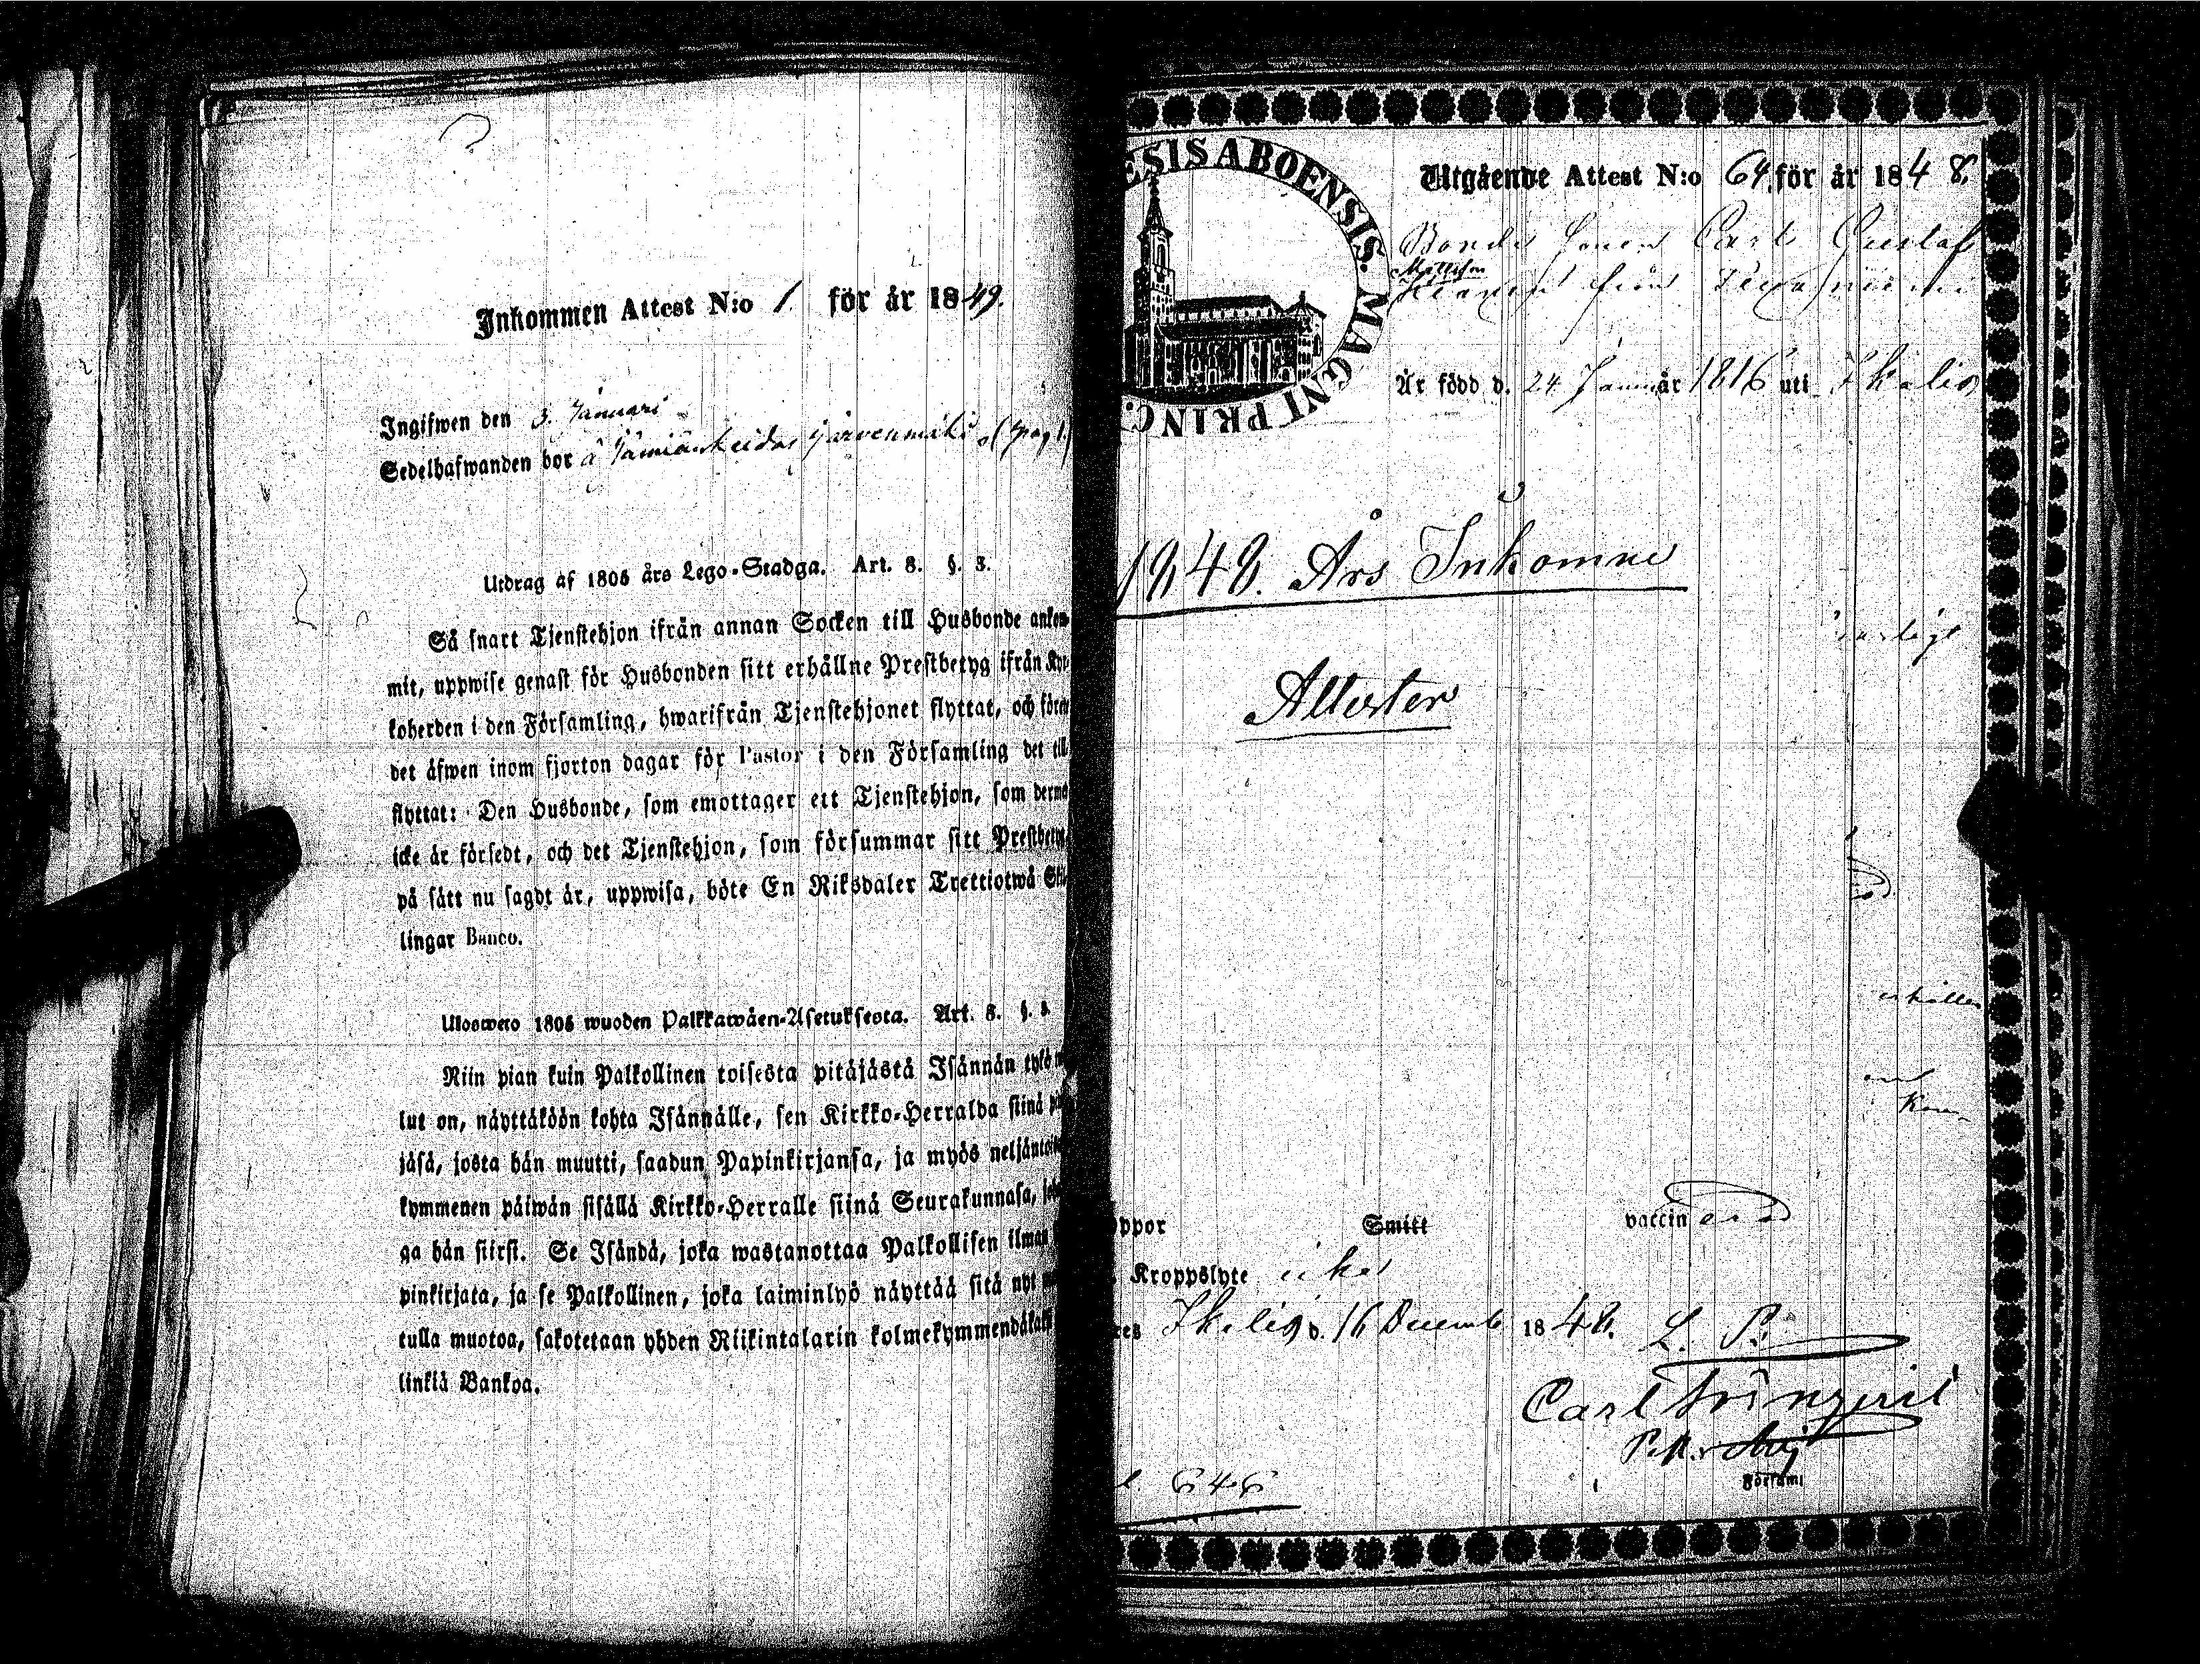 Inkommen Attest N:o 1. för år 1849.
Ingifwen den 3. Januari
Sedelhafwanden bor å Jämiänkeidas Järvenmäki (pag 1.)
Utdrag af 1805 års Lego-Stadga. Art. 8. §. 3.
Så snart Tjenstehjon ifrån annan Socken till Husbonde ankom-
mit, uppwise genast för Husbonden sitt erhållne Prestbetyg ifrån Kyr-
koherden i den Församling, hwarifrån Tjenstehjonet flyttat, och förete
det äfwen inom fjorton dagar för Pastor i den Församling det till
flyttat: Den Husbonde, som emottager ett Tjenstehjon, som dermed
icke är försedt, och det Tjenstehjon, som försummar sitt Prestbetyg,
på sätt nu sagdt är, uppwisa, böte En Riksdaler Trettiotwå Skil-
lingar Banco.
Ulosweto 1805 wuoden Palkkawäen-Asetuksesta. Art. 8. §. 3.
Niin pian kuin Palkollinen toisesta pitäjästä Isännän tykö
lut on, näyttäköön kohta Isännälle, sen Kirkko-Herralda siinä
jäsä, josta hän muutti, saadun Papinkirjansa, ja myös neljäntoista
kymmenen päiwän sisällä Kirkko-Herralle siinä Seurakunnasa,
ga hän siirsi. Se Isändä, joka wastanottaa Palkollisen ilman
pinkirjata, ja se Palkollinen, joka laiminlyö näyttää sitä nyt
tulla muotoa, sakotetaan yhden Riikintalarin kolmekymmendäkaksi
linkiä Bankoa.
ESIS ABOENSIS. MAGNI PRINC.
Utgående Attest N:o 64. för år 1848.
Bonde Sonen Carl Gustaf
Mattson
från
Är född d. 24 Januar år 1816 uti Ikalis
1848. Års Inkomne
Attester
ppor Smitt vaccinerad
Kroppslyte icke
res Ikalis d. 16 Decemb 1848. L. P.
Carl
Församl
646